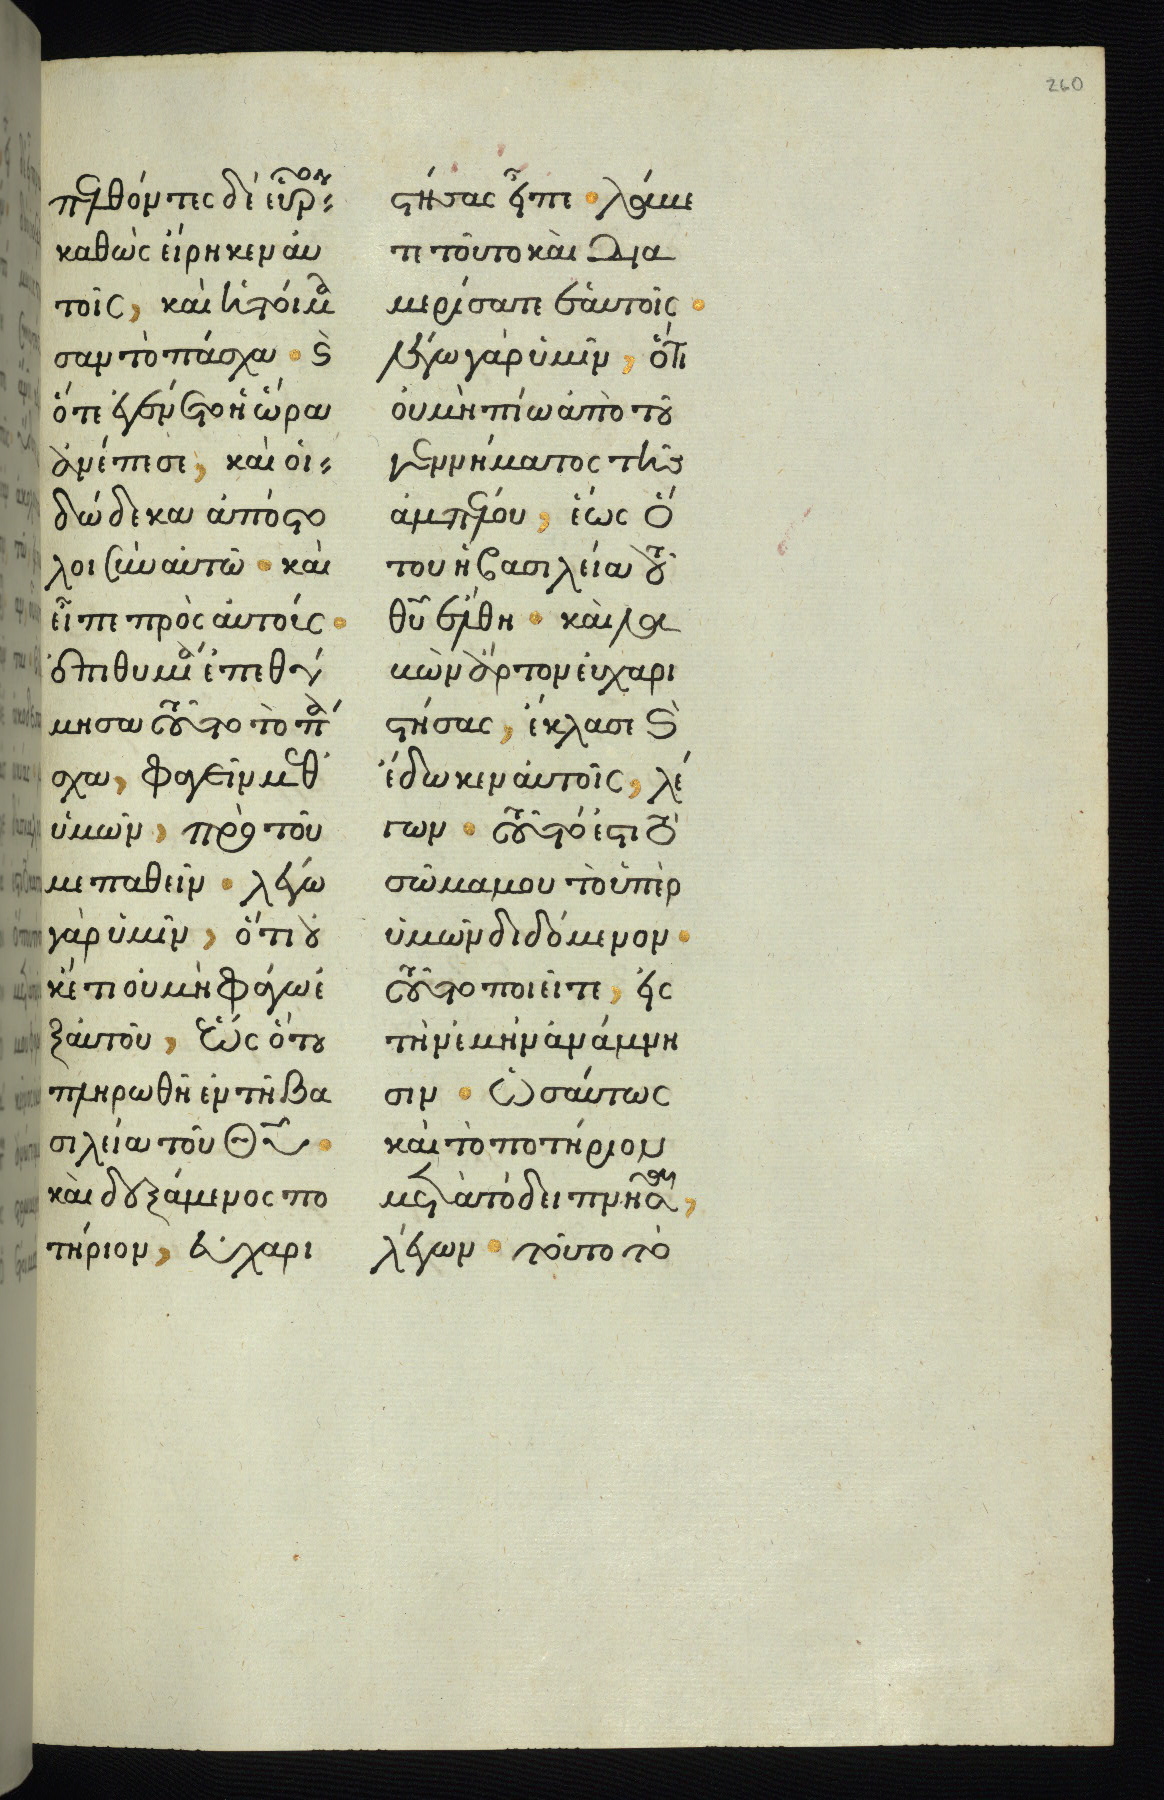 260
πελθόντες δὲ εὗρον
καθὼς εἴρηκεν αὐ
τοῖς, καὶ ἡτοίμα
σαν τὸ πάσχα · καὶ
ὅτε ἐγένετο ἡ ὥρα
ἀνέπεσε, καὶ οἱ
δώδεκα ἀπόστο
λοι σὺν αὐτῶ · καὶ
εἶπε πρὸς αὐτοὺς ·
ἐπιθυμία ἐπεθύ
μησα τοῦτο τὸ πά
σχα, φαγεῖν μεθ'
ὑμῶν, πρὸ τοῦ
με παθεῖν · λέγω
γὰρ ὑμῖν, ὅτι οὐ
κέτι οὐ μὴ φάγω ἐ
ξ αὐτοῦ, ἕως ὅτου
πληρωθῆ ἐν τῆ βα
σιλεία τοῦ θῦ ·
καὶ δεξάμενος πο
τήριον, εὐχαρι
στήσας εἶπε · λάβε
τε τοῦτο καὶ δια
μερίσατε ἑαυτοῖς ·
λέγω γὰρ ὑμῖν, ὅτι
οὐ μὴ πίω ἀπὸ τοῦ
γεννήματος τῆς
ἀμπέλου, ἕως ὅ
του ἡ βασιλεία τοῦ
θῦ ἔλθη · καὶ λα
βὼν ἄρτον εὐχαρι
στήσας, ἔκλασε καὶ
ἔδωκεν αὐτοῖς, λέ
γων · τοῦτό ἐστι τὸ
σῶμα μου τὸ ὑπὲρ
ὑμῶν διδόμενον ·
τοῦτο ποιεῖτε, εἰς
τὴν ἐμὴν ἀνάμνη
σιν · ὡσαύτως
καὶ τὸ ποτήριον
μετὰ τὸ δειπνῆσαι,
λέγων · τοῦτο τὸ